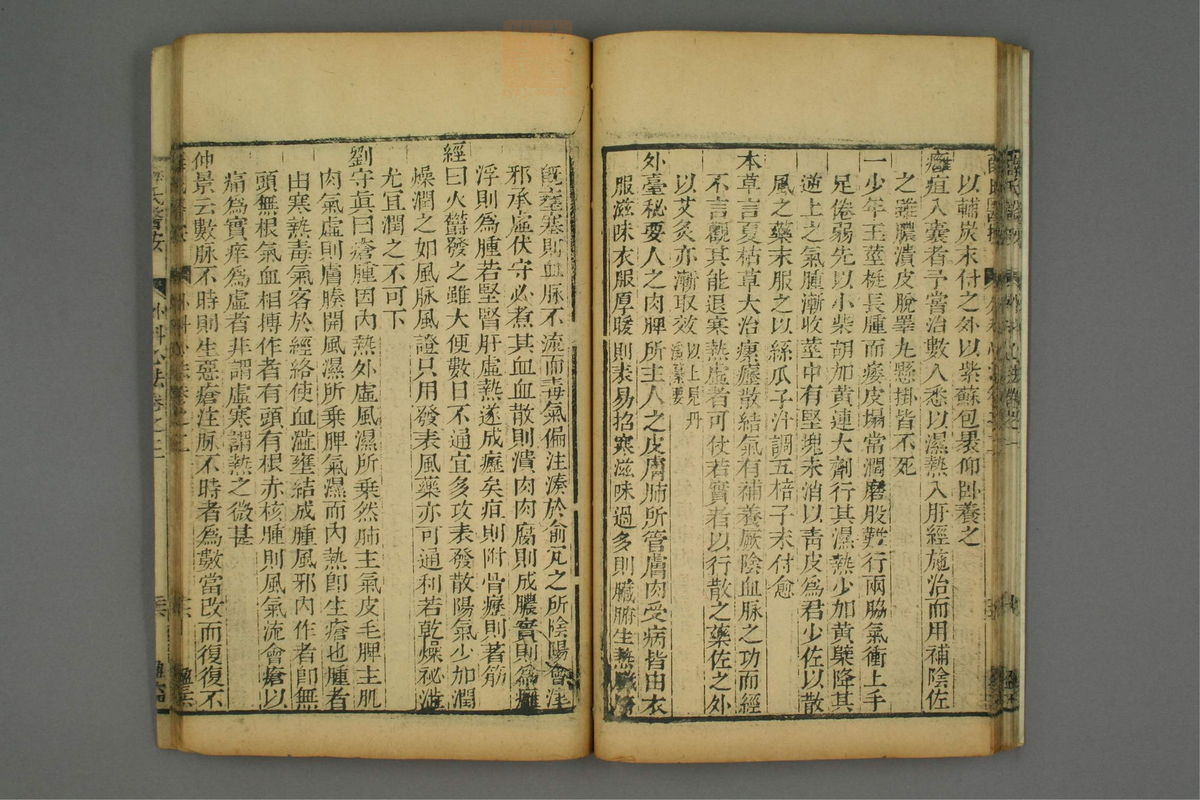 以輔炭末付之外以紫蘇包裹仰卧養之
癰疽入囊者予嘗治數人悉以濕熱入肝經施治而用補陰佐
之雖膿潰皮脫睪丸懸掛皆不死
一少年玉莖梃長腫而痿皮塌常潤磨股難行兩脇氣衝上手
足倦弱先以小柴胡加黃連大劑行其濕熱少加黃檗降其
逆上之氣腫漸收莖中有堅塊未消以青皮爲君少佐以散
風之藥末服之以絲瓜子汁調五棓子末付愈
本草言夏枯草大治瘰癧散結氣有補養厥陰血脉之功而經
不言觀其能退寒熱虛者可仗若實者以行散之藥佐之外
以艾灸亦漸取效
以上見丹
溪纂要
外臺秘要人之肉脾所主人之皮膚肺所管膚肉受病皆由衣
服滋味衣服厚暖則表易招寒滋味過多則臟腑生熱
旣壅塞則血脉不流而毒氣偏注湊於俞穴之所陰陽會津
邪承虛伏守必煮其血血散則潰肉肉腐則成膿實則爲癰
浮則爲腫若堅腎肝虛熱遂成癧矣疽則附骨療則著筋
經曰火鬱發之雖大便數日不通宜多攻表發散陽氣少加潤
燥潤之如風脉風證只用發表風藥亦可通利若乾燥祕澁
尤宜潤之不可下
劉守眞曰瘡腫因內熱外虛風濕所乗然肺主氣皮毛脾主肌
肉氣虛則膚腠開風濕所乗脾氣濕而內熱卽生瘡也腫者
由寒熱毒氣客於經絡使血澁壅結成腫風邪內作者卽無
頭無根氣血相搏作者有頭有根赤核腫則風氣流會瘡以
痛爲實痒爲虛者非謂虛寒謂熱之微甚
仲景云數脉不時則生惡瘡注脉不時者爲數當改而復復不
外科心法卷之二